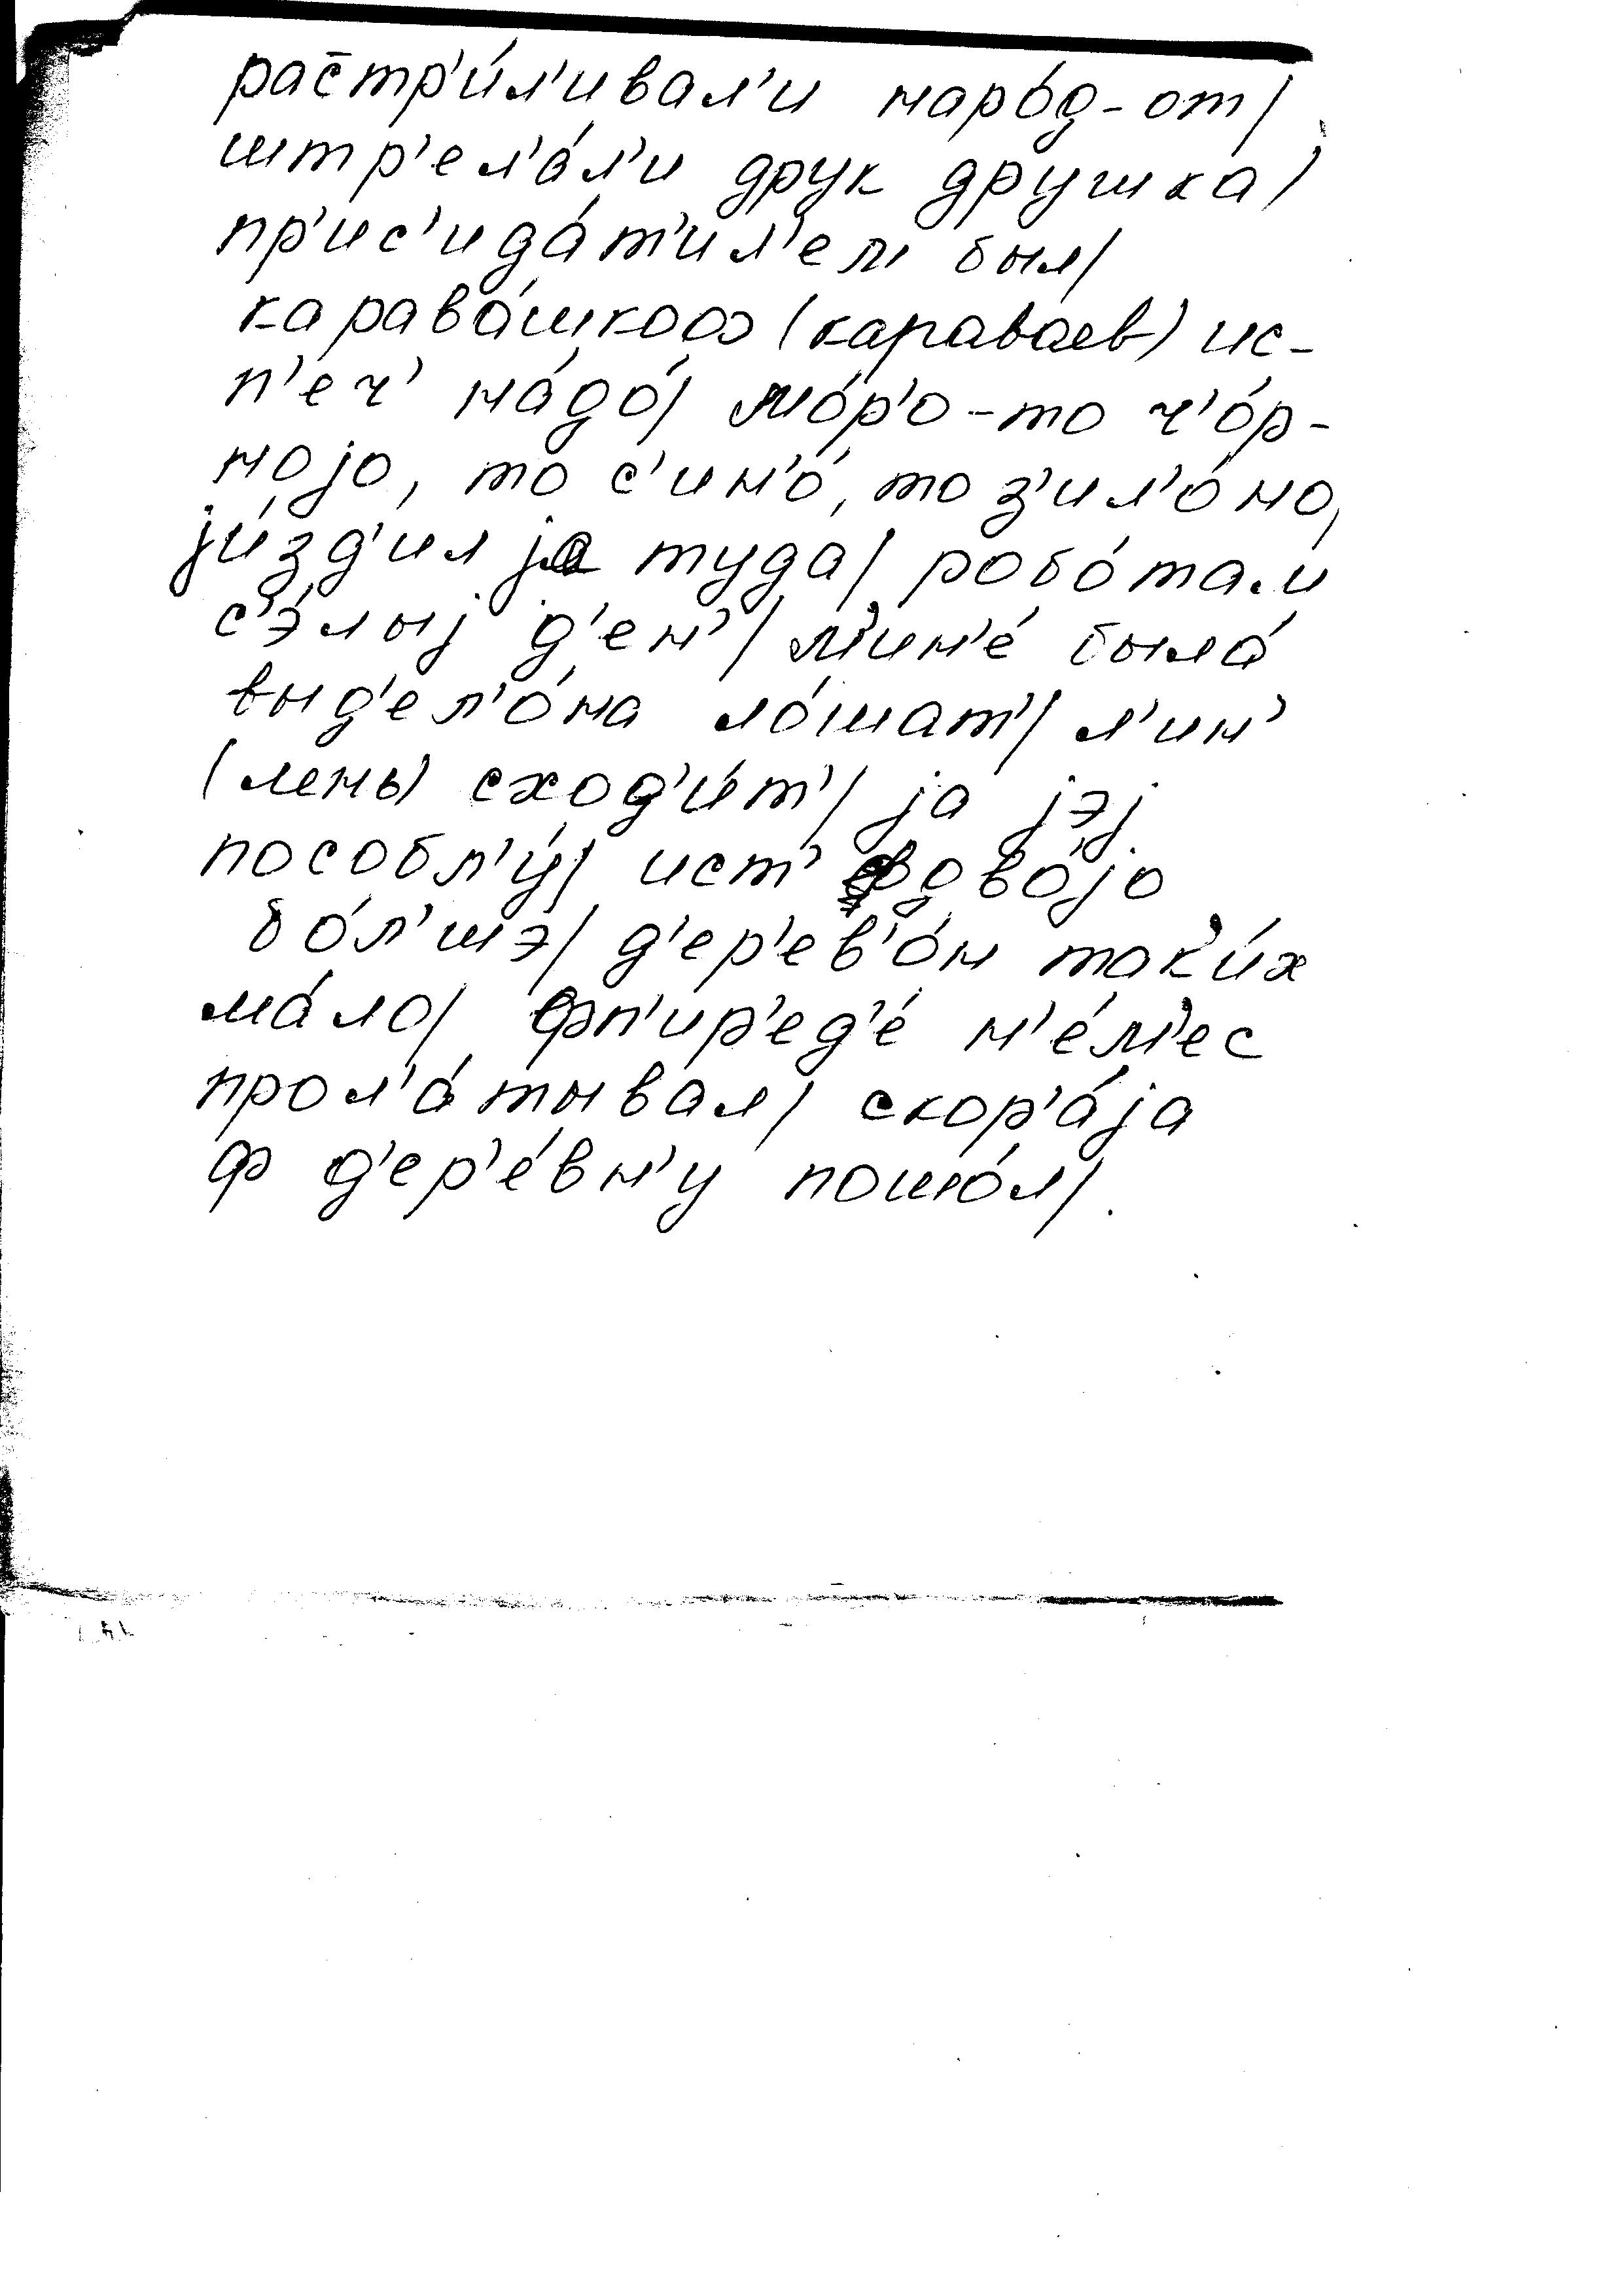 рас̄тр'и́л'ивал'и наро́д-от/
штр'ел'а́л'и друк дру́шка/
пр'ис'ида́т'ил'ел' был/
карава́шкоф (караваев) ис-
п'еч' на́до́/ мо́р'о-то ч'о́р-
ноjо, то с'ин'о́, то з'ил'о́но,
jи́зд'ил jа туда/ робо́тали
с'э́лыj д'ен'/ м'ин'е́ была́
выд'ел'о́на ло́шат'/ л'ин'
(лень) сход'и́т'/ jа jэj
пособл'у́/ ист' вдво́jо
бо́л'шэ/ д'ер'ев'о́н так'и́х
ма́ло/ фп'ир'ед'е́ н'е́м'ес
прол'а́тывал/ скор'а́jа
ф д'ер'е́вн'у пошо́л/.